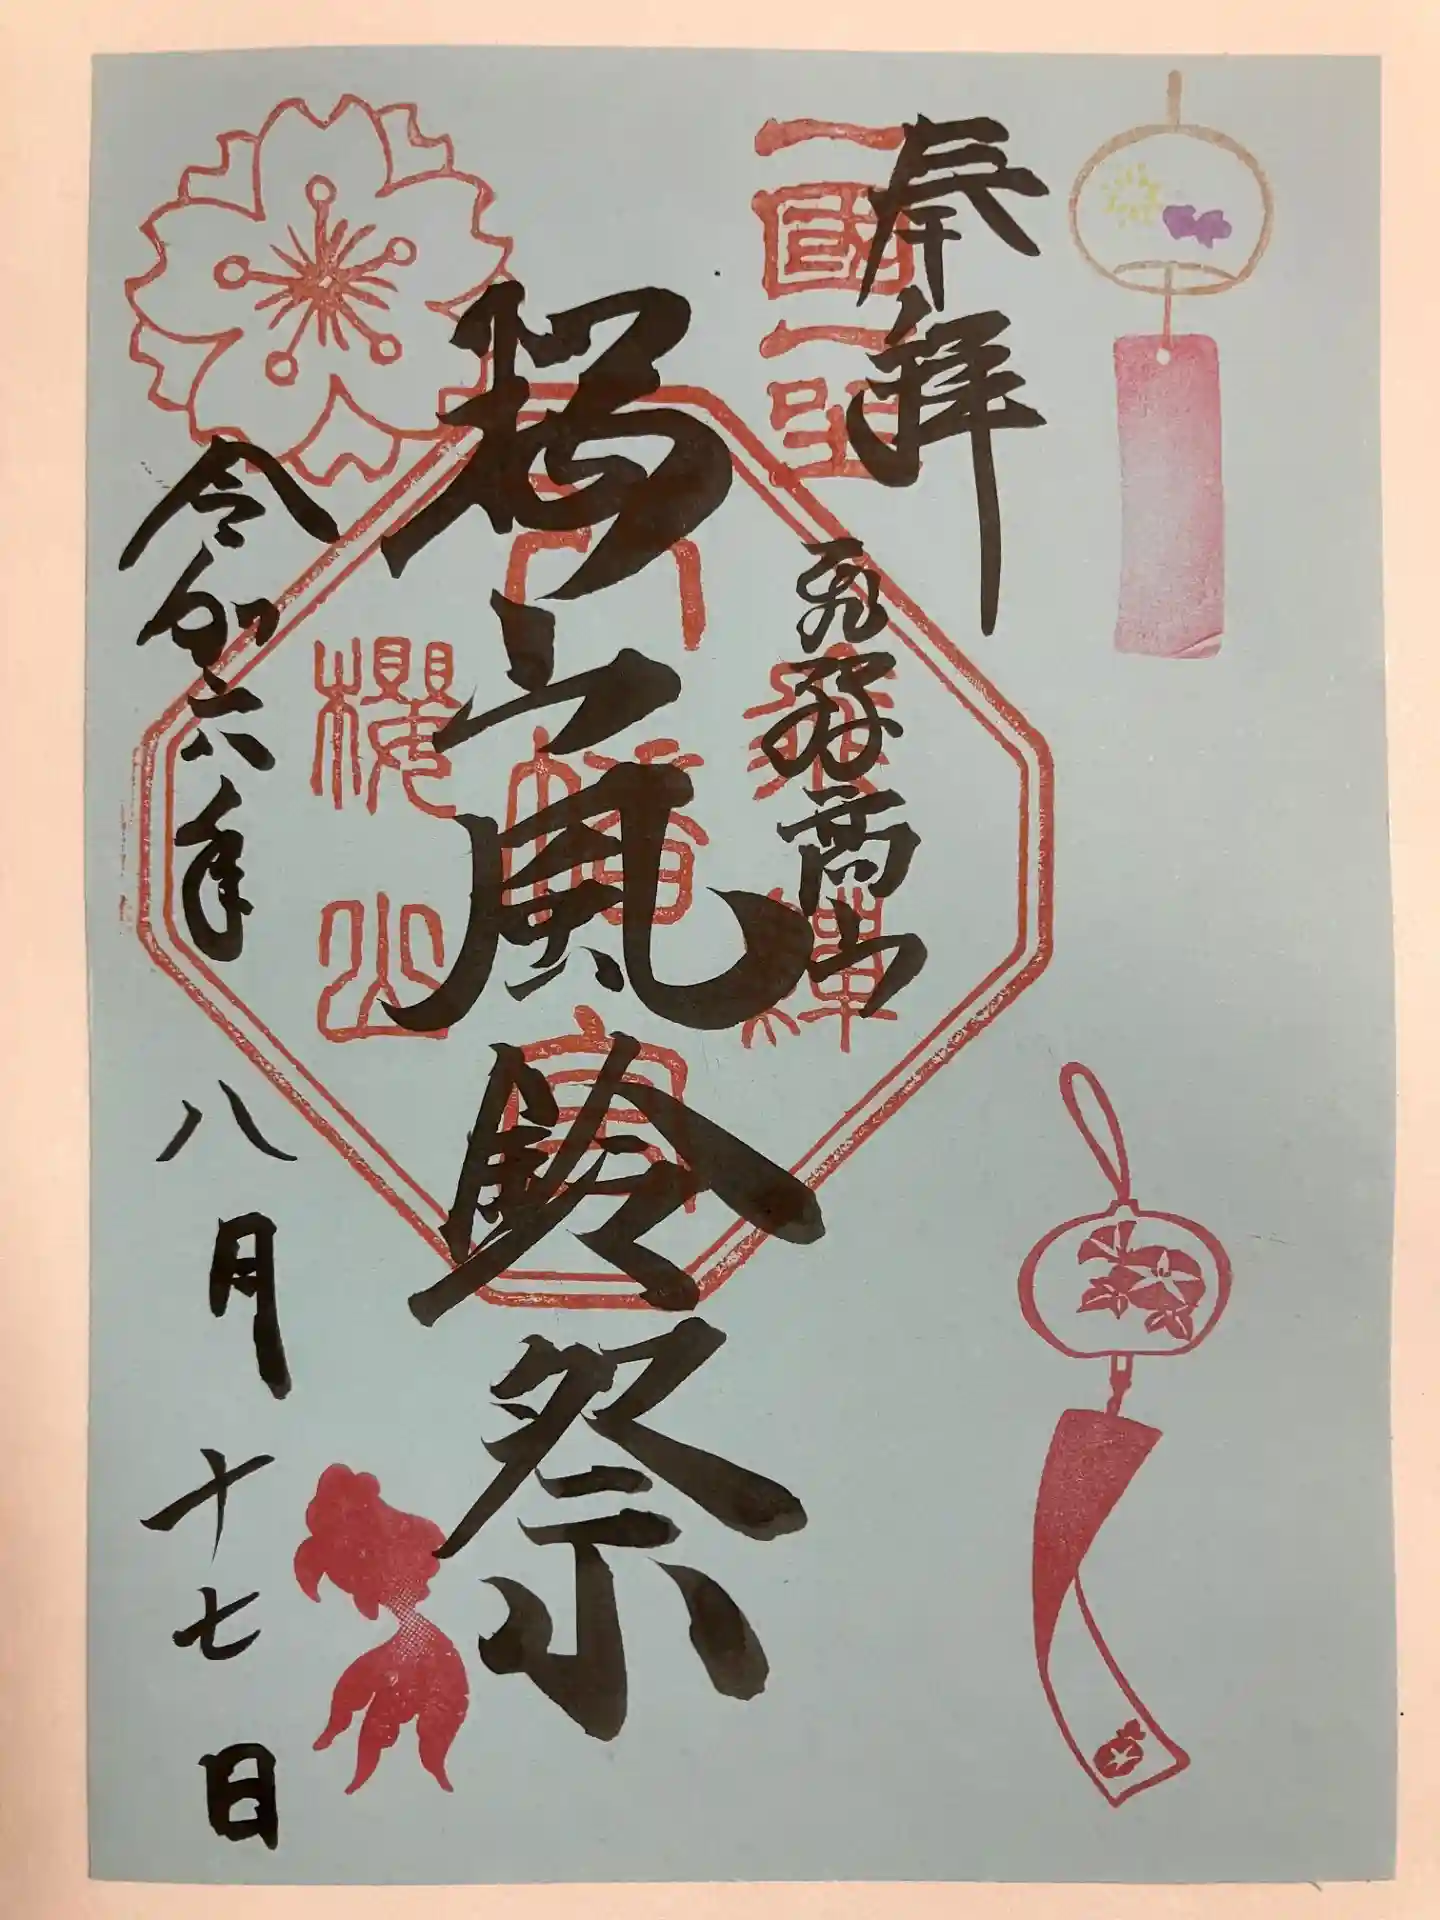 奉拝
一國一社
飛騨高山
飛騨
八幡宮
櫻山
桜山風鈴祭
令和六年
八月十七日